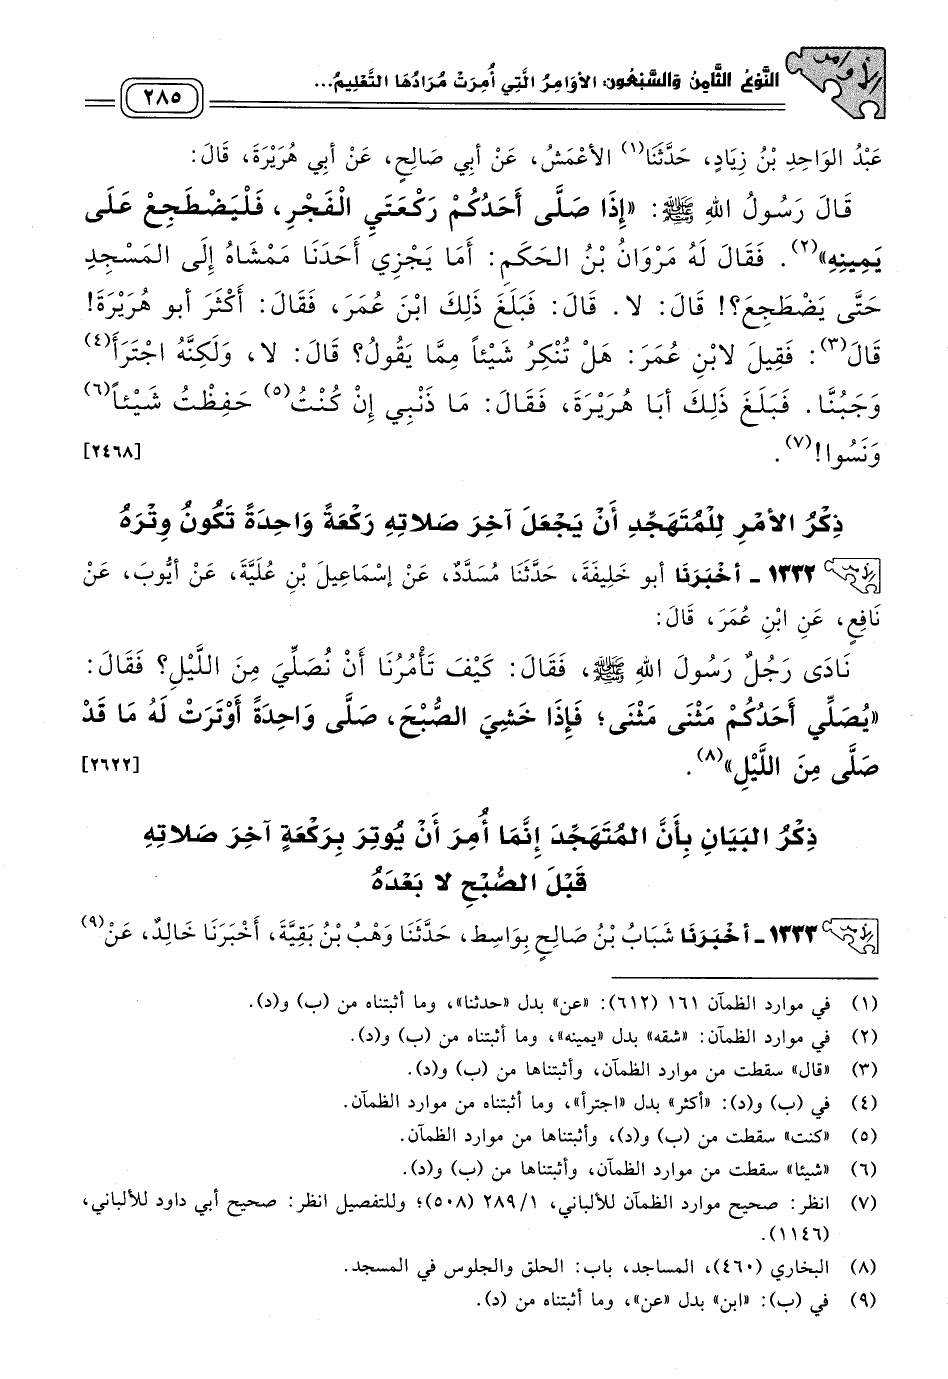 الأوامر
النَّوْعُ الثَّامِنُ وَالسَّبْعُونَ: الأَوَامِرُ الَّتِي أُمِرَتْ مُرَادُهَا التَّعْلِيمُ...
٢٨٥
عَبْدُ الوَاحِدِ بْنُ زِيَادٍ، حَدَّثَنَا(١) الأَعْمَشُ، عَنْ أَبِي صَالِحٍ، عَنْ أَبِي هُرَيْرَةَ، قَالَ:
قَالَ رَسُولُ اللهِ ﷺ: «إِذَا صَلَّى أَحَدُكُمْ رَكْعَتَيِ الْفَجْرِ، فَلْيَضْطَجِعْ عَلَى
يَمِينِهِ»(٢). فَقَالَ لَهُ مَرْوَانُ بْنُ الحَكَمِ: أَمَا يَجْزِي أَحَدَنَا مَمْشَاهُ إِلَى المَسْجِدِ
حَتَّى يَضْطَجِعَ؟! قَالَ: لا. قَالَ: فَبَلَغَ ذَلِكَ ابْنَ عُمَرَ، فَقَالَ: أَكْثَرَ أبو هُرَيْرَةَ!
قَالَ(٣): فَقِيلَ لابْنِ عُمَرَ: هَلْ تُنْكِرُ شَيْئاً مِمَّا يَقُولُ؟ قَالَ: لا، وَلَكِنَّهُ اجْتَرَأَ(٤)
وَجَبُنَّا. فَبَلَغَ ذَلِكَ أَبَا هُرَيْرَةَ، فَقَالَ: مَا ذَنْبِي إِنْ كُنْتُ(٥) حَفِظْتُ شَيْئاً(٦)
وَنَسُوا!(٧). [٢٤٦٨]
ذِكْرُ الأَمْرِ لِلْمُتَهَجِّدِ أَنْ يَجْعَلَ آخِرَ صَلاتِهِ رَكْعَةً وَاحِدَةً تَكُونُ وِتْرَهُ
١٣٣٢ - أَخْبَرَنَا أبو خَلِيفَةَ، حَدَّثَنَا مُسَدَّدٌ، عَنْ إِسْمَاعِيلَ بْنِ عُلَيَّةَ، عَنْ أَيُّوبَ، عَنْ
نَافِعٍ، عَنِ ابْنِ عُمَرَ، قَالَ:
نَادَى رَجُلٌ رَسُولَ اللهِ ﷺ، فَقَالَ: كَيْفَ تَأْمُرُنَا أَنْ نُصَلِّيَ مِنَ اللَّيْلِ؟ فَقَالَ:
«يُصَلِّي أَحَدُكُمْ مَثْنَى مَثْنَى؛ فَإِذَا خَشِيَ الصُّبْحَ، صَلَّى وَاحِدَةً أَوْتَرَتْ لَهُ مَا قَدْ
صَلَّى مِنَ اللَّيْلِ»(٨). [٢٦٢٢]
ذِكْرُ البَيَانِ بِأَنَّ المُتَهَجِّدَ إِنَّمَا أُمِرَ أَنْ يُوتِرَ بِرَكْعَةٍ آخِرَ صَلاتِهِ
قَبْلَ الصُّبْحِ لا بَعْدَهُ
١٣٣٣ - أَخْبَرَنَا شَبَابُ بْنُ صَالِحٍ بِوَاسِط، حَدَّثَنَا وَهْبُ بْنُ بَقِيَّةَ، أَخْبَرَنَا خَالِدٌ، عَنْ(٩)
(١) في موارد الظمآن ١٦١ (٦١٢): «عن» بدل «حدثنا»، وما أثبتناه من (ب) و(د).
(٢) في موارد الظمآن: «شقه» بدل «يمينه»، وما أثبتناه من (ب) و(د).
(٣) «قال» سقطت من موارد الظمآن، وأثبتناها من (ب) و(د).
(٤) في (ب) و(د): «أكثر» بدل «اجترأ»، وما أثبتناه من موارد الظمآن.
(٥) «كنت» سقطت من (ب) و(د)، وأثبتناها من موارد الظمآن.
(٦) «شيئا» سقطت من موارد الظمآن، وأثبتناها من (ب) و(د).
(٧) انظر: صحيح موارد الظمآن للألباني، ١/ ٢٨٩ (٥٠٨)؛ وللتفصيل انظر: صحيح أبي داود للألباني،
(١١٤٦).
(٨) البخاري (٤٦٠)، المساجد، باب: الحلق والجلوس في المسجد.
(٩) في (ب): «ابن» بدل «عن»، وما أثبتناه من (د).